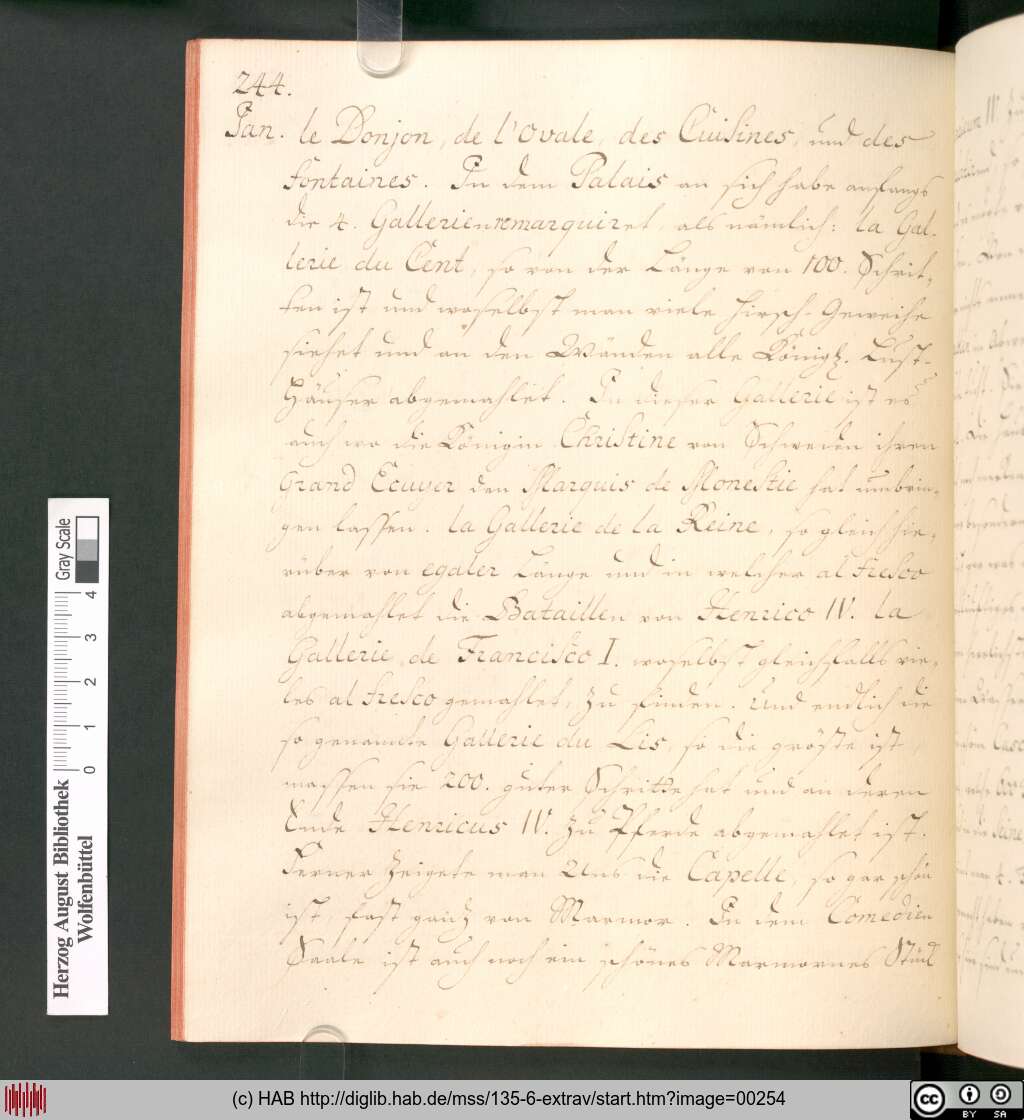 244.
Jan. le Donjon, de l'Ovale, des Cuisines, und des
Fontaines. In dem Palais an sich habe anfangs
die 4. Gallerien remarquiret, als nämlich: la Gal-
lerie du Cent, so von der Länge von 100. Schrit-
ten ist und woselbst man viele Hirsch-Geweihe
siehet und an den Wänden alle Königl. Lust-
Häuser abgemahlet. In dieser Gallerie ist es
auch wo die Königin Christine von Schweden ihren
Grand Ecuyer den Marquis de Monestie hat umbrin-
gen lassen. la Gallerie de la Reine, so gleich hie-
rüber von egaler Länge und in welcher al fresco
abgemahlet die Bataillen von Henrico IV. la
Gallerie de Francisco I. woselbst gleichfalls vie-
les al fresco gemahlet, zu finden. Und endlich die
so genannte Gallerie du Lis, so die gröste ist,
massen sie 200. guter Schritte hat und an deren
Ende Henricus IV. zu Pferde abgemahlet ist.
Ferner zeigete man Uns die Capelle, so gar schön
ist, fast gantz von Marmor. In dem Comedien
Saale ist auch noch ein schönes Marmornes Stück
Herzog August Bibliothek
Wolfenbüttel
Gray Scale
0 1 2 3 4
(c) HAB http://diglib.hab.de/mss/135-6-extrav/start.htm?image=00254
cc BY SA